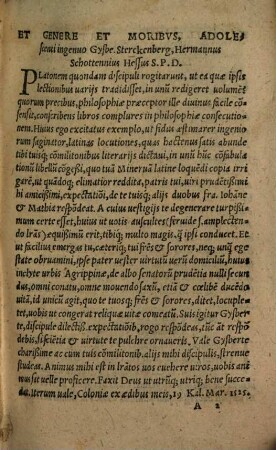 ET GENERE ET MORIBVS, ADOLE=
scenti ingenuo Gysbe. Sterckenberg, Hermannus
Schottennius Hessus S. P. D.
PLatonem quondam discipuli rogitarunt, ut ea quæ ipsis
lectionibus uarijs tradidisset, in unũ redigeret volumẽ:
quorum precibus, philosophiæ præceptor ille diuinus facile cõ=
sensit, conscribens libros complures in philosophiæ consecutio=
nem. Huius ego excitatus exemplo, ut fidus æstimarer ingenio=
rum saginator, latinas locutiones, quas hactenus satis abunde
tibi tuisq; cõmilitonibus literarijs dictaui, in unũ huc cõfabula
tionũ libellũ cõgessi, quo tuâ Mineruâ latine loquẽdi copia irri
garẽ, ut quadoq; elimatior reddita, patris tui, uiri prudẽtissimi
mihi amicissimi, expectationi, de te tuisq; alijs duobus fra. Iohãne
& Mathia respõdeat. A cuius uestigijs te degenerare turpissi=
mum certe esset, huius ut uotis auscultes, ferulæ sæ. amplectẽn
do lrãs) equissimũ erit, tibiq; multo magis, q̃ ipsi conducet. Et
ut facilius emergas tu, cæteriq; tui frẽs & sorores, neq; unq̃ ege
state obruamini, ipse pater uester uirtuti uerũ domiciliũ, huius
inclytæ urbis Agrippinæ, de albo senatorũ prudẽtia nulli secun
dus, omni conatu, omne mouendo saxũ, etiã & cœlibẽ ducẽdo
uitã, id unicũ agit, quo te tuosq; frẽs & sorores, ditet, locuple=
tet, uobis ut congerat reliquiæ uitæ comeatũ. Suisigitur Gysber
te, discipule dilectiss. expectatiõib, rogo respõdeas, tũc ãt respõ
debis, si sciẽtia & uirtute te pulchre ornaueris. Vale Gysberte
charissime ac cum tuis cõmilitonib. alijs mihi discipulis, strenue
studeas. Animus mihi est in lrãtos uos euehere uiros, uobis ani
mus sit uelle proficere. Faxit Deus ut utrũq; utriq; bene succe=
dat. Iterum uale, Coloniæ ex ædibus meis, 19 Kal. Mar. 1525.
A 2